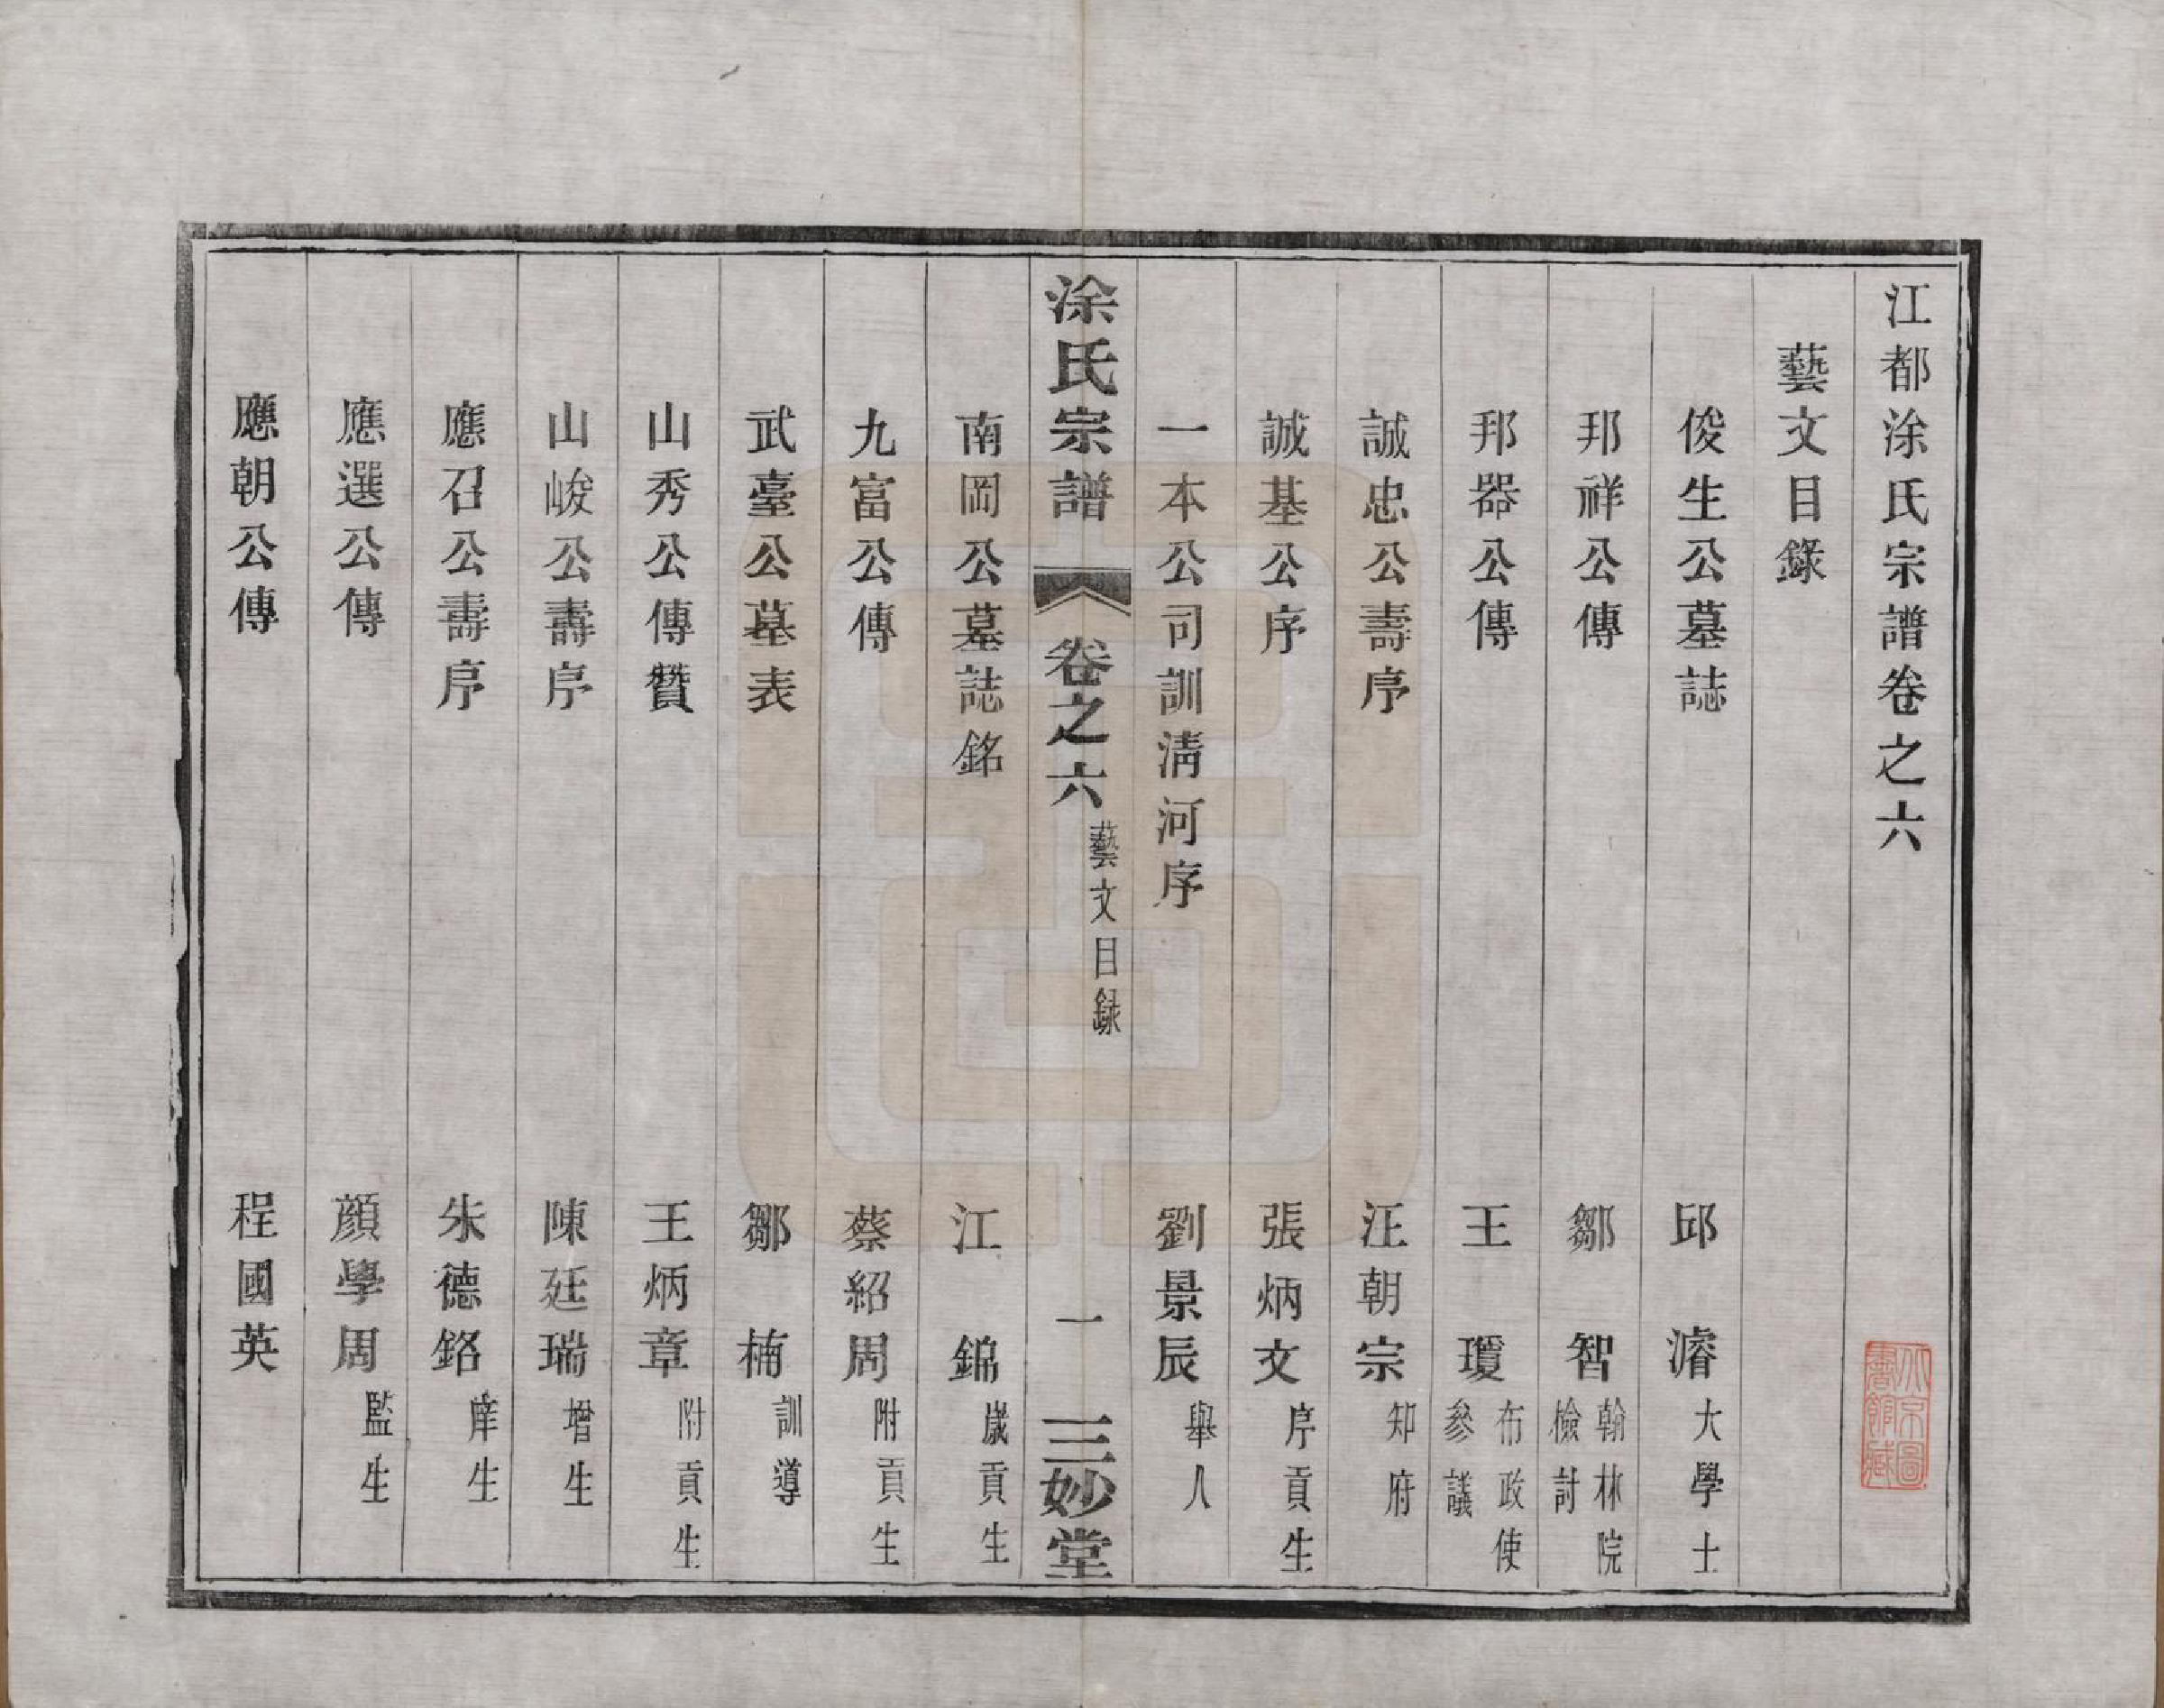 江都涂氏宗譜卷之六
藝文目錄
俊生公墓誌　邱濬　大學士
邦祥公傳　鄒智　翰林院檢討
邦器公傳　王瓊　布政使參議
誠忠公壽序　汪朝宗　知府
誠基公序　張炳文　序貢生
一本公司訓清河序　劉景辰　舉人
涂氏宗譜　卷之六　藝文目錄　一　三妙堂
南岡公墓誌銘　江錦　歲貢生
九富公傳　蔡紹周　附貢生
武臺公墓表　鄒楠　訓導
山秀公傳贊　王炳章　附貢生
山峻公壽序　陳廷瑞　增生
應召公壽序　朱德銘　庠生
應選公傳　顏學周　監生
應朝公傳　程國英